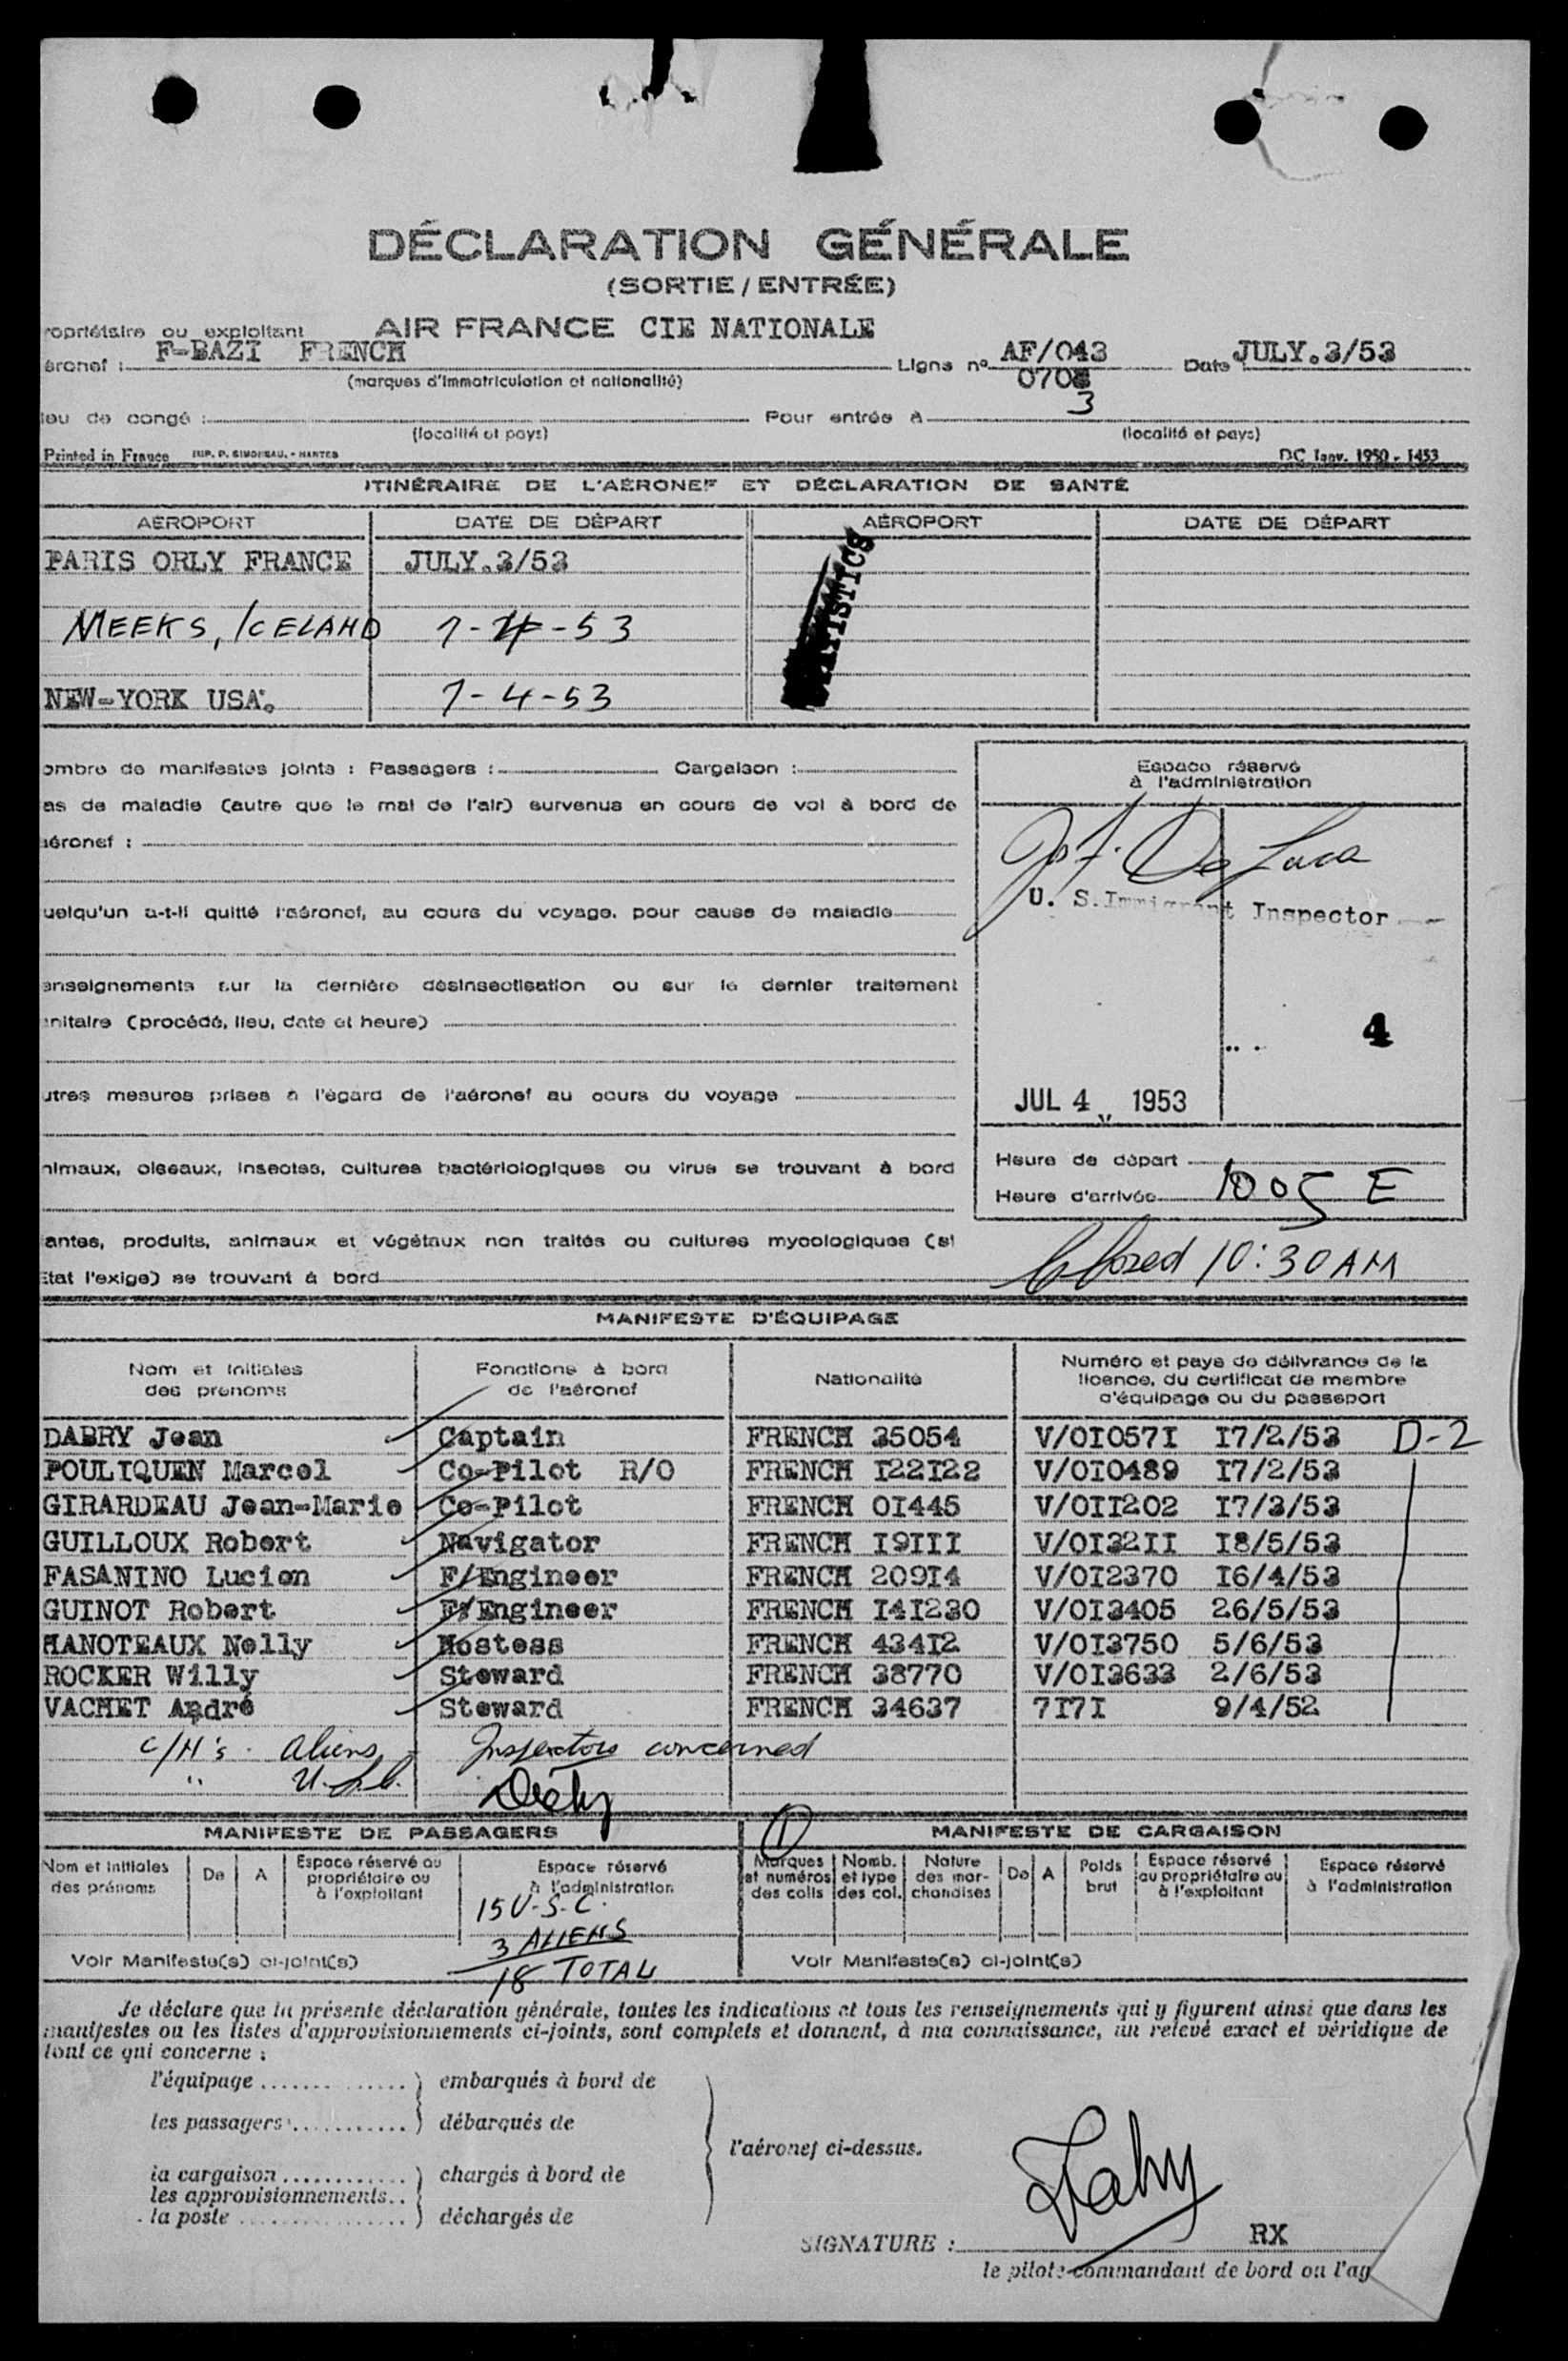 DÉCLARATION GÉNÉRALE
(SORTIE / ENTRÉE)
ropriétaire ou exploitant AIR FRANCE CIE NATIONALE
éronef : F-BAZI FRENCH Ligne nº AF/043 Date JULY.3/53
(marques d'immatriculation et nationalité) 0708
3
ieu de congé : Pour entrée à
(localité et pays) (localité et pays)
Printed in France IMP. P. SIMONEAU. - NANTES DC Janv. 1950 - 1453
ITINÉRAIRE DE L'AÉRONEF ET DÉCLARATION DE SANTÉ
AÉROPORT DATE DE DÉPART AÉROPORT DATE DE DÉPART
PARIS ORLY FRANCE JULY.3/53
MEEKS, ICELAND 7-4-53
NEW-YORK USA. 7-4-53
ombre de manifestes joints : Passagers : Cargaison :
as de maladie (autre que le mal de l'air) survenus en cours de vol à bord de
aéronef :
uelqu'un a-t-il quitté l'aéronef, au cours du voyage, pour cause de maladie
enseignements sur la dernière désinsectisation ou sur le dernier traitement
anitaire (procédé, lieu, date et heure)
utres mesures prises à l'égard de l'aéronef au cours du voyage
nimaux, oiseaux, insectes, cultures bactériologiques ou virus se trouvant à bord
antes, produits, animaux et végétaux non traités ou cultures mycologiques (si
Etat l'exige) se trouvant à bord
Espace réservé
à l'administration
De Luca
U. S. Immigrant Inspector
4
JUL 4 1953
Heure de départ
Heure d'arrivée 1005 E
Closed 10:30 AM
MANIFESTE D'ÉQUIPAGE
Nom et initiales des prénoms Fonctions à bord de l'aéronef Nationalité Numéro et pays de délivrance de la licence, du certificat de membre d'équipage ou du passeport
DABRY Jean Captain FRENCH 35054 V/OI057I I7/2/53 D-2
POULIQUEN Marcel Co-Pilot R/O FRENCH I22I22 V/OI0489 I7/2/53
GIRARDEAU Jean-Marie Co-Pilot FRENCH OI445 V/OII202 I7/3/53
GUILLOUX Robert Navigator FRENCH I9III V/OI32II I8/5/53
FASANINO Lucien F/Engineer FRENCH 209I4 V/OI2370 I6/4/53
GUINOT Robert F/Engineer FRENCH I4I230 V/OI3405 26/5/53
HANOTEAUX Nelly Hostess FRENCH 434I2 V/OI3750 5/6/53
ROCKER Willy Steward FRENCH 38770 V/OI3633 2/6/53
VACHET André Steward FRENCH 34637 7I7I 9/4/52
C/H's. aliens - Inspectors concerned
" U.S.C.
1
MANIFESTE DE PASSAGERS MANIFESTE DE CARGAISON
Nom et initiales des prénoms De A Espace réservé au propriétaire ou à l'exploitant Espace réservé à l'administration Marques et numéros des colis Nomb. et type des col. Nature des marchandises De A Poids brut Espace réservé au propriétaire ou à l'exploitant Espace réservé à l'administration
15 U.S.C.
3 ALIENS
Voir Manifeste(s) ci-joint(s) 18 TOTAL Voir Manifeste(s) ci-joint(s)
Je déclare que la présente déclaration générale, toutes les indications et tous les renseignements qui y figurent ainsi que dans les
manifestes ou les listes d'approvisionnements ci-joints, sont complets et donnent, à ma connaissance, un relevé exact et véridique de
tout ce qui concerne :
l'équipage .............. ) embarqués à bord de
les passagers ........... ) débarqués de
l'aéronef ci-dessus.
la cargaison ............ ) chargés à bord de
les approvisionnements..
la poste ................ ) déchargés de
SIGNATURE : RX
le pilote commandant de bord ou l'ag